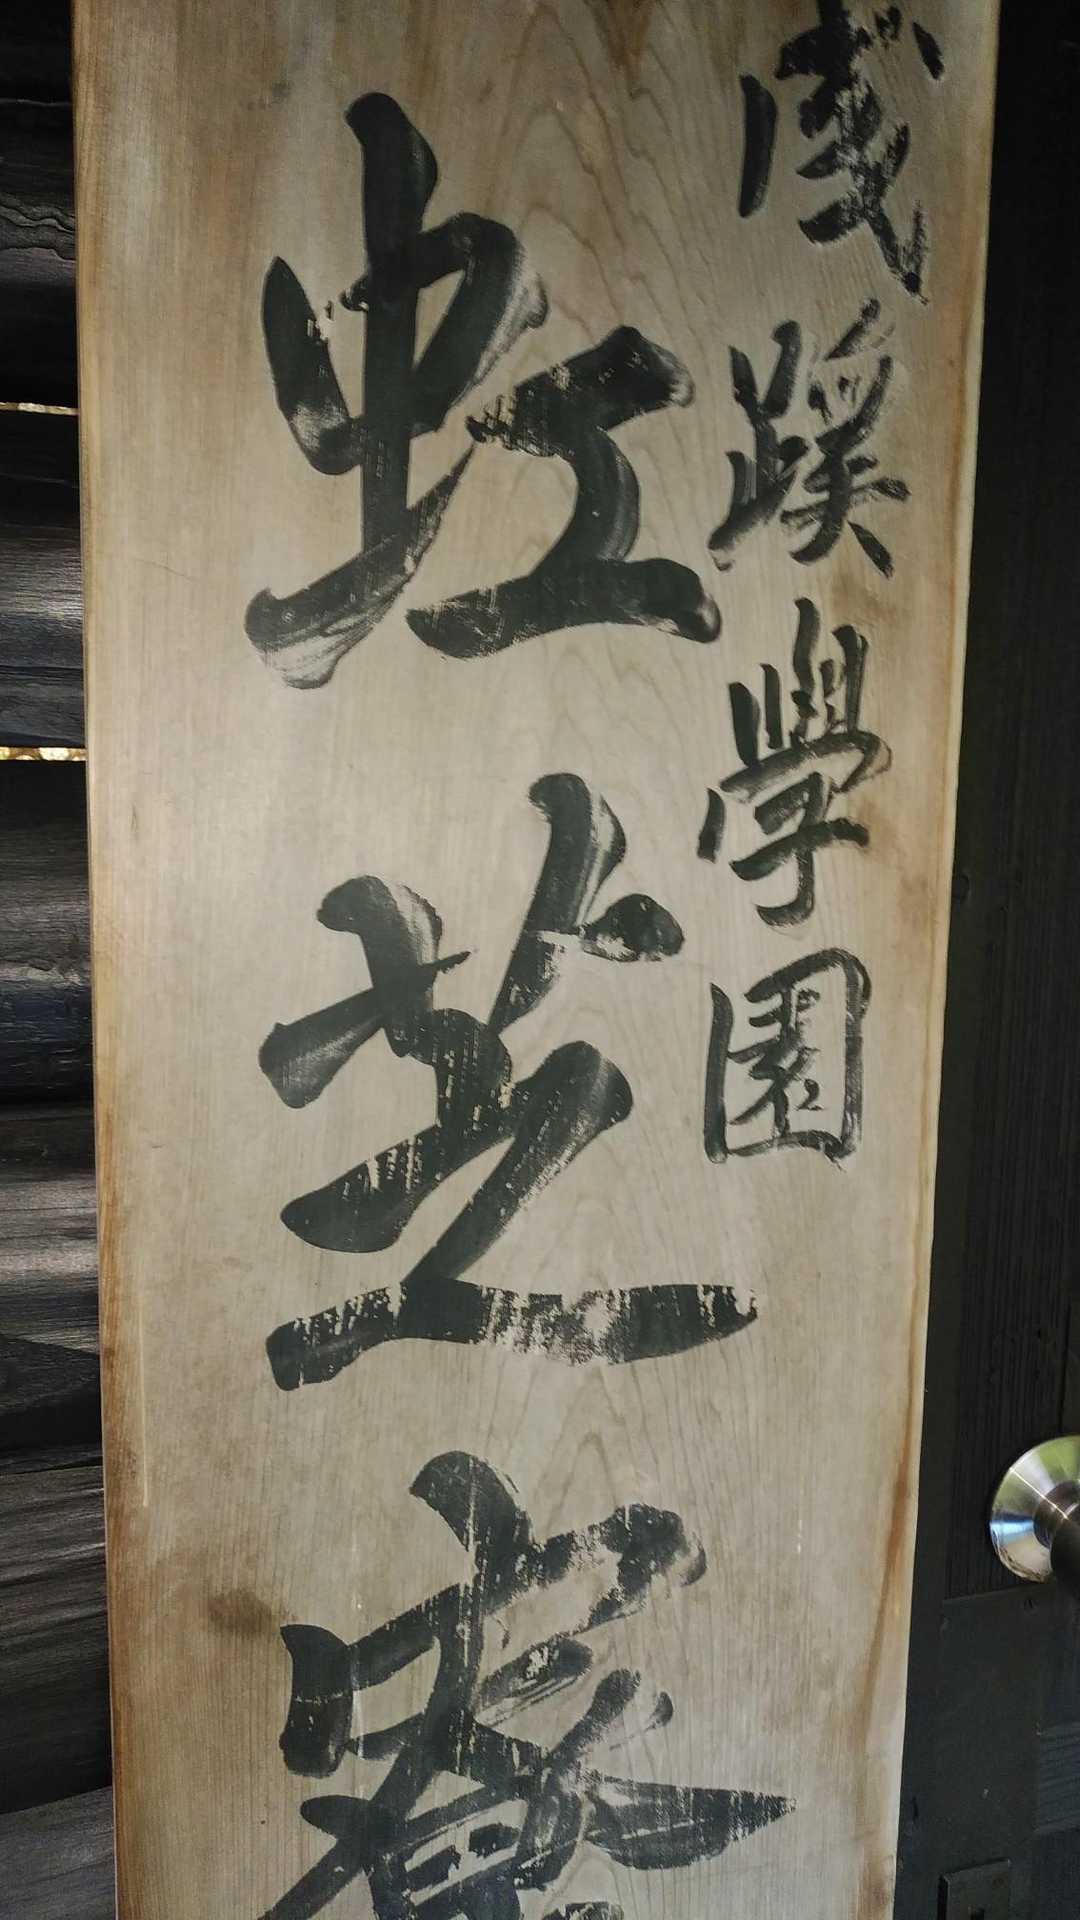 成蹊學園
虹芝寮